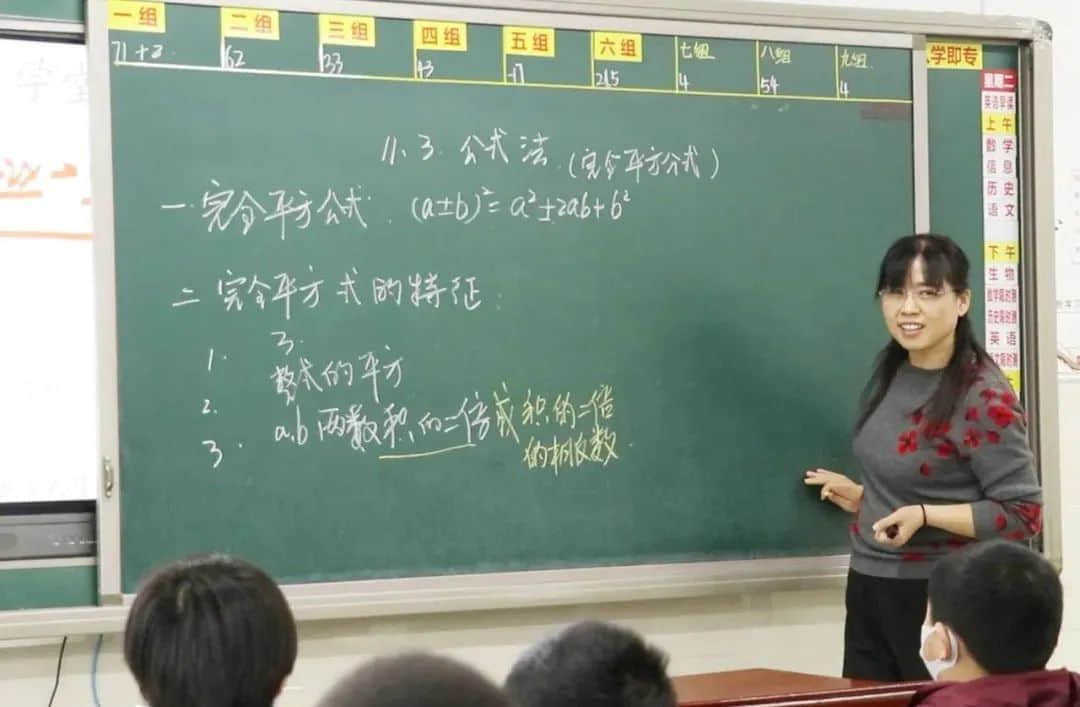 一组 二组 三组 四组 五组 六组 七组 八组 九组
71+2 62 33 43 -17 215 4 54 4
11.3.公式法.(完全平方公式)
一.完全平方公式.(a±b)²=a²±2ab+b²
二 完全平方式的特征:
1. 3.
2. 数式的平方
3. a.b两数积的二倍或积的二倍
的相反数.
学即专
星期二
英语早读
上午
数学
信息
历史
语文
下午
生物
英语
学堂